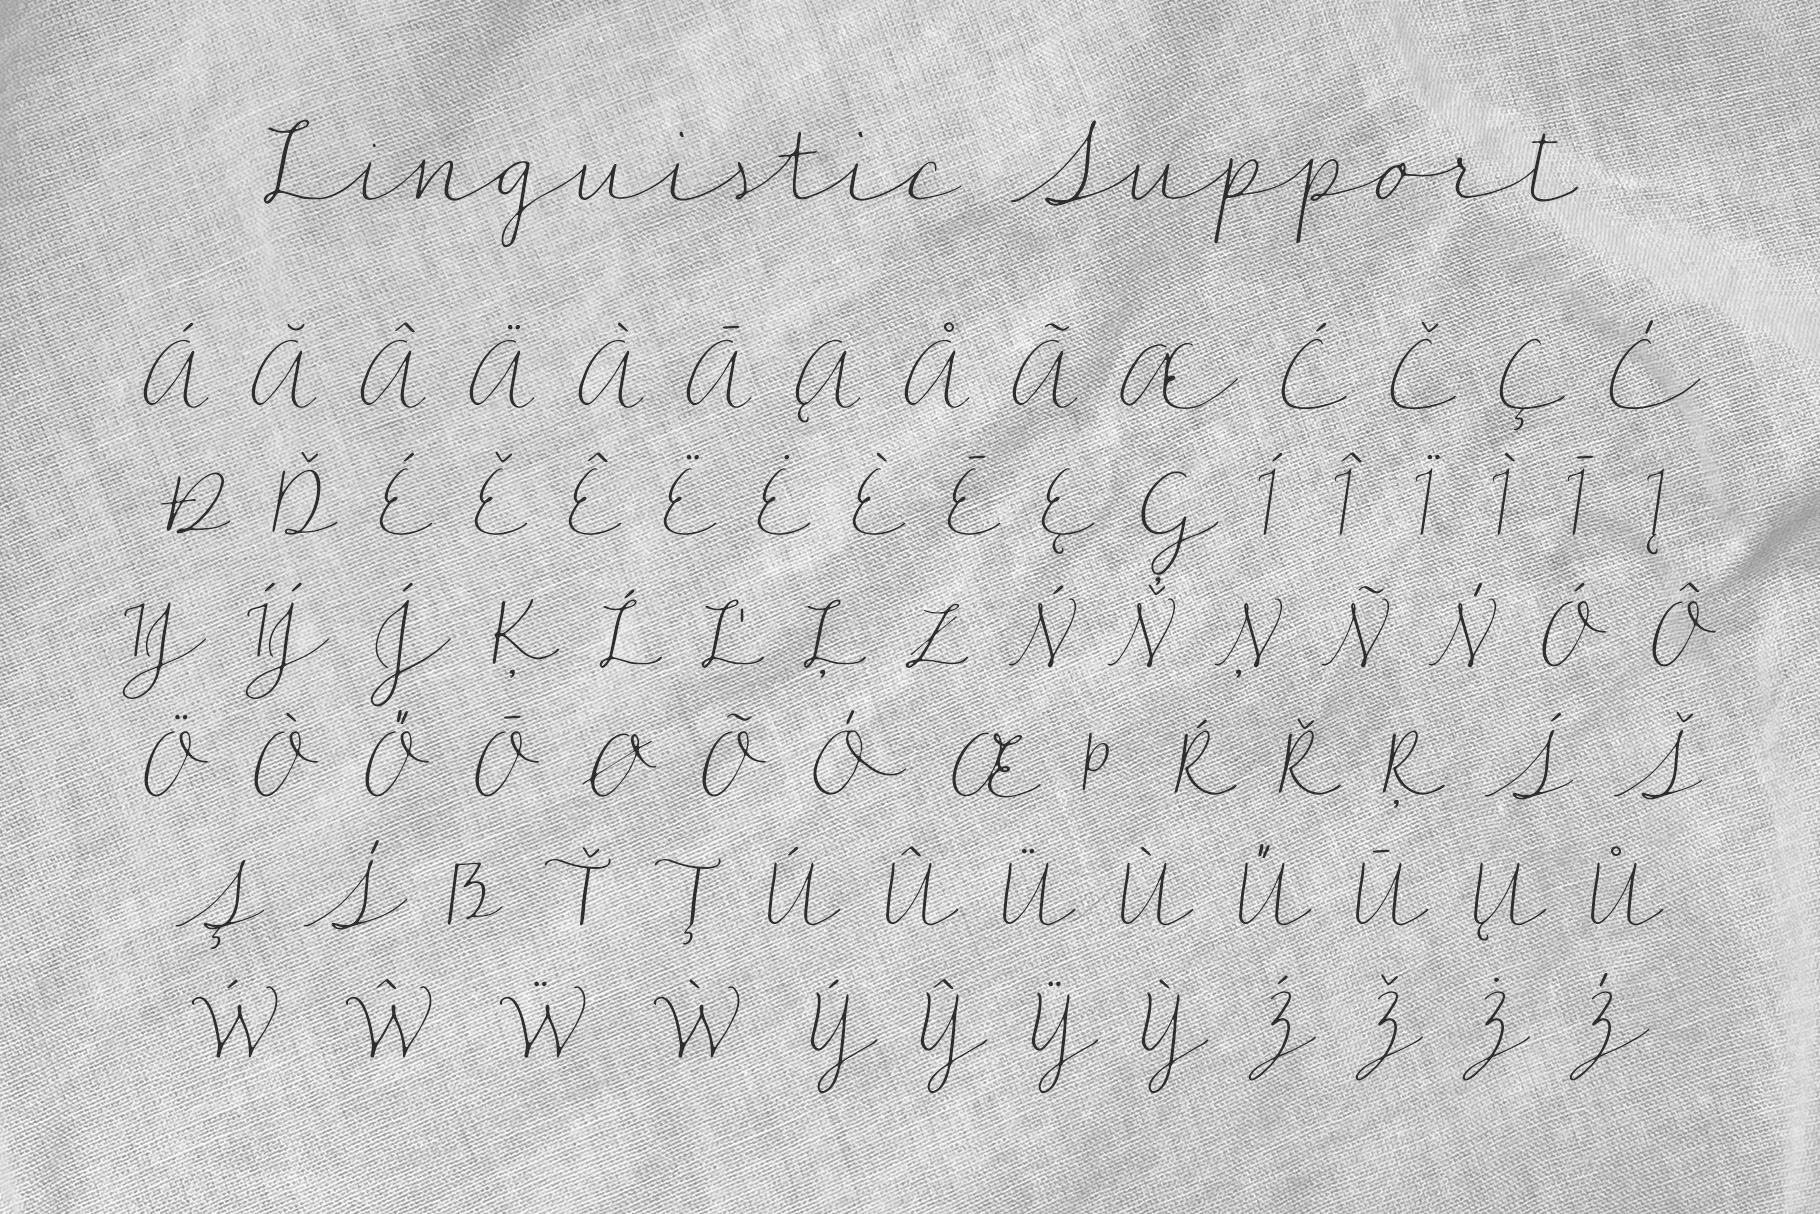 Linguistic Support
Á Ă Â Ä À Ā Ą Å Ã Æ Ć Č Ç Ć
Đ Ď É Ě Ê Ë Ė È Ē Ę Ģ Í Î Ï Ì Ī Į
IJ ÍJ́ J́ Ķ Ĺ Ľ Ļ Ł Ń Ň Ņ Ñ Ń Ó Ô
Ö Ò Ő Ō Ø Õ Ó Œ Þ Ŕ Ř Ŗ Ś Š
Ş Ś ẞ Ť Ţ Ú Û Ü Ù Ű Ū Ų Ů
Ẃ Ŵ Ẅ Ẁ Ý Ŷ Ÿ Ỳ Ź Ž Ż Ź